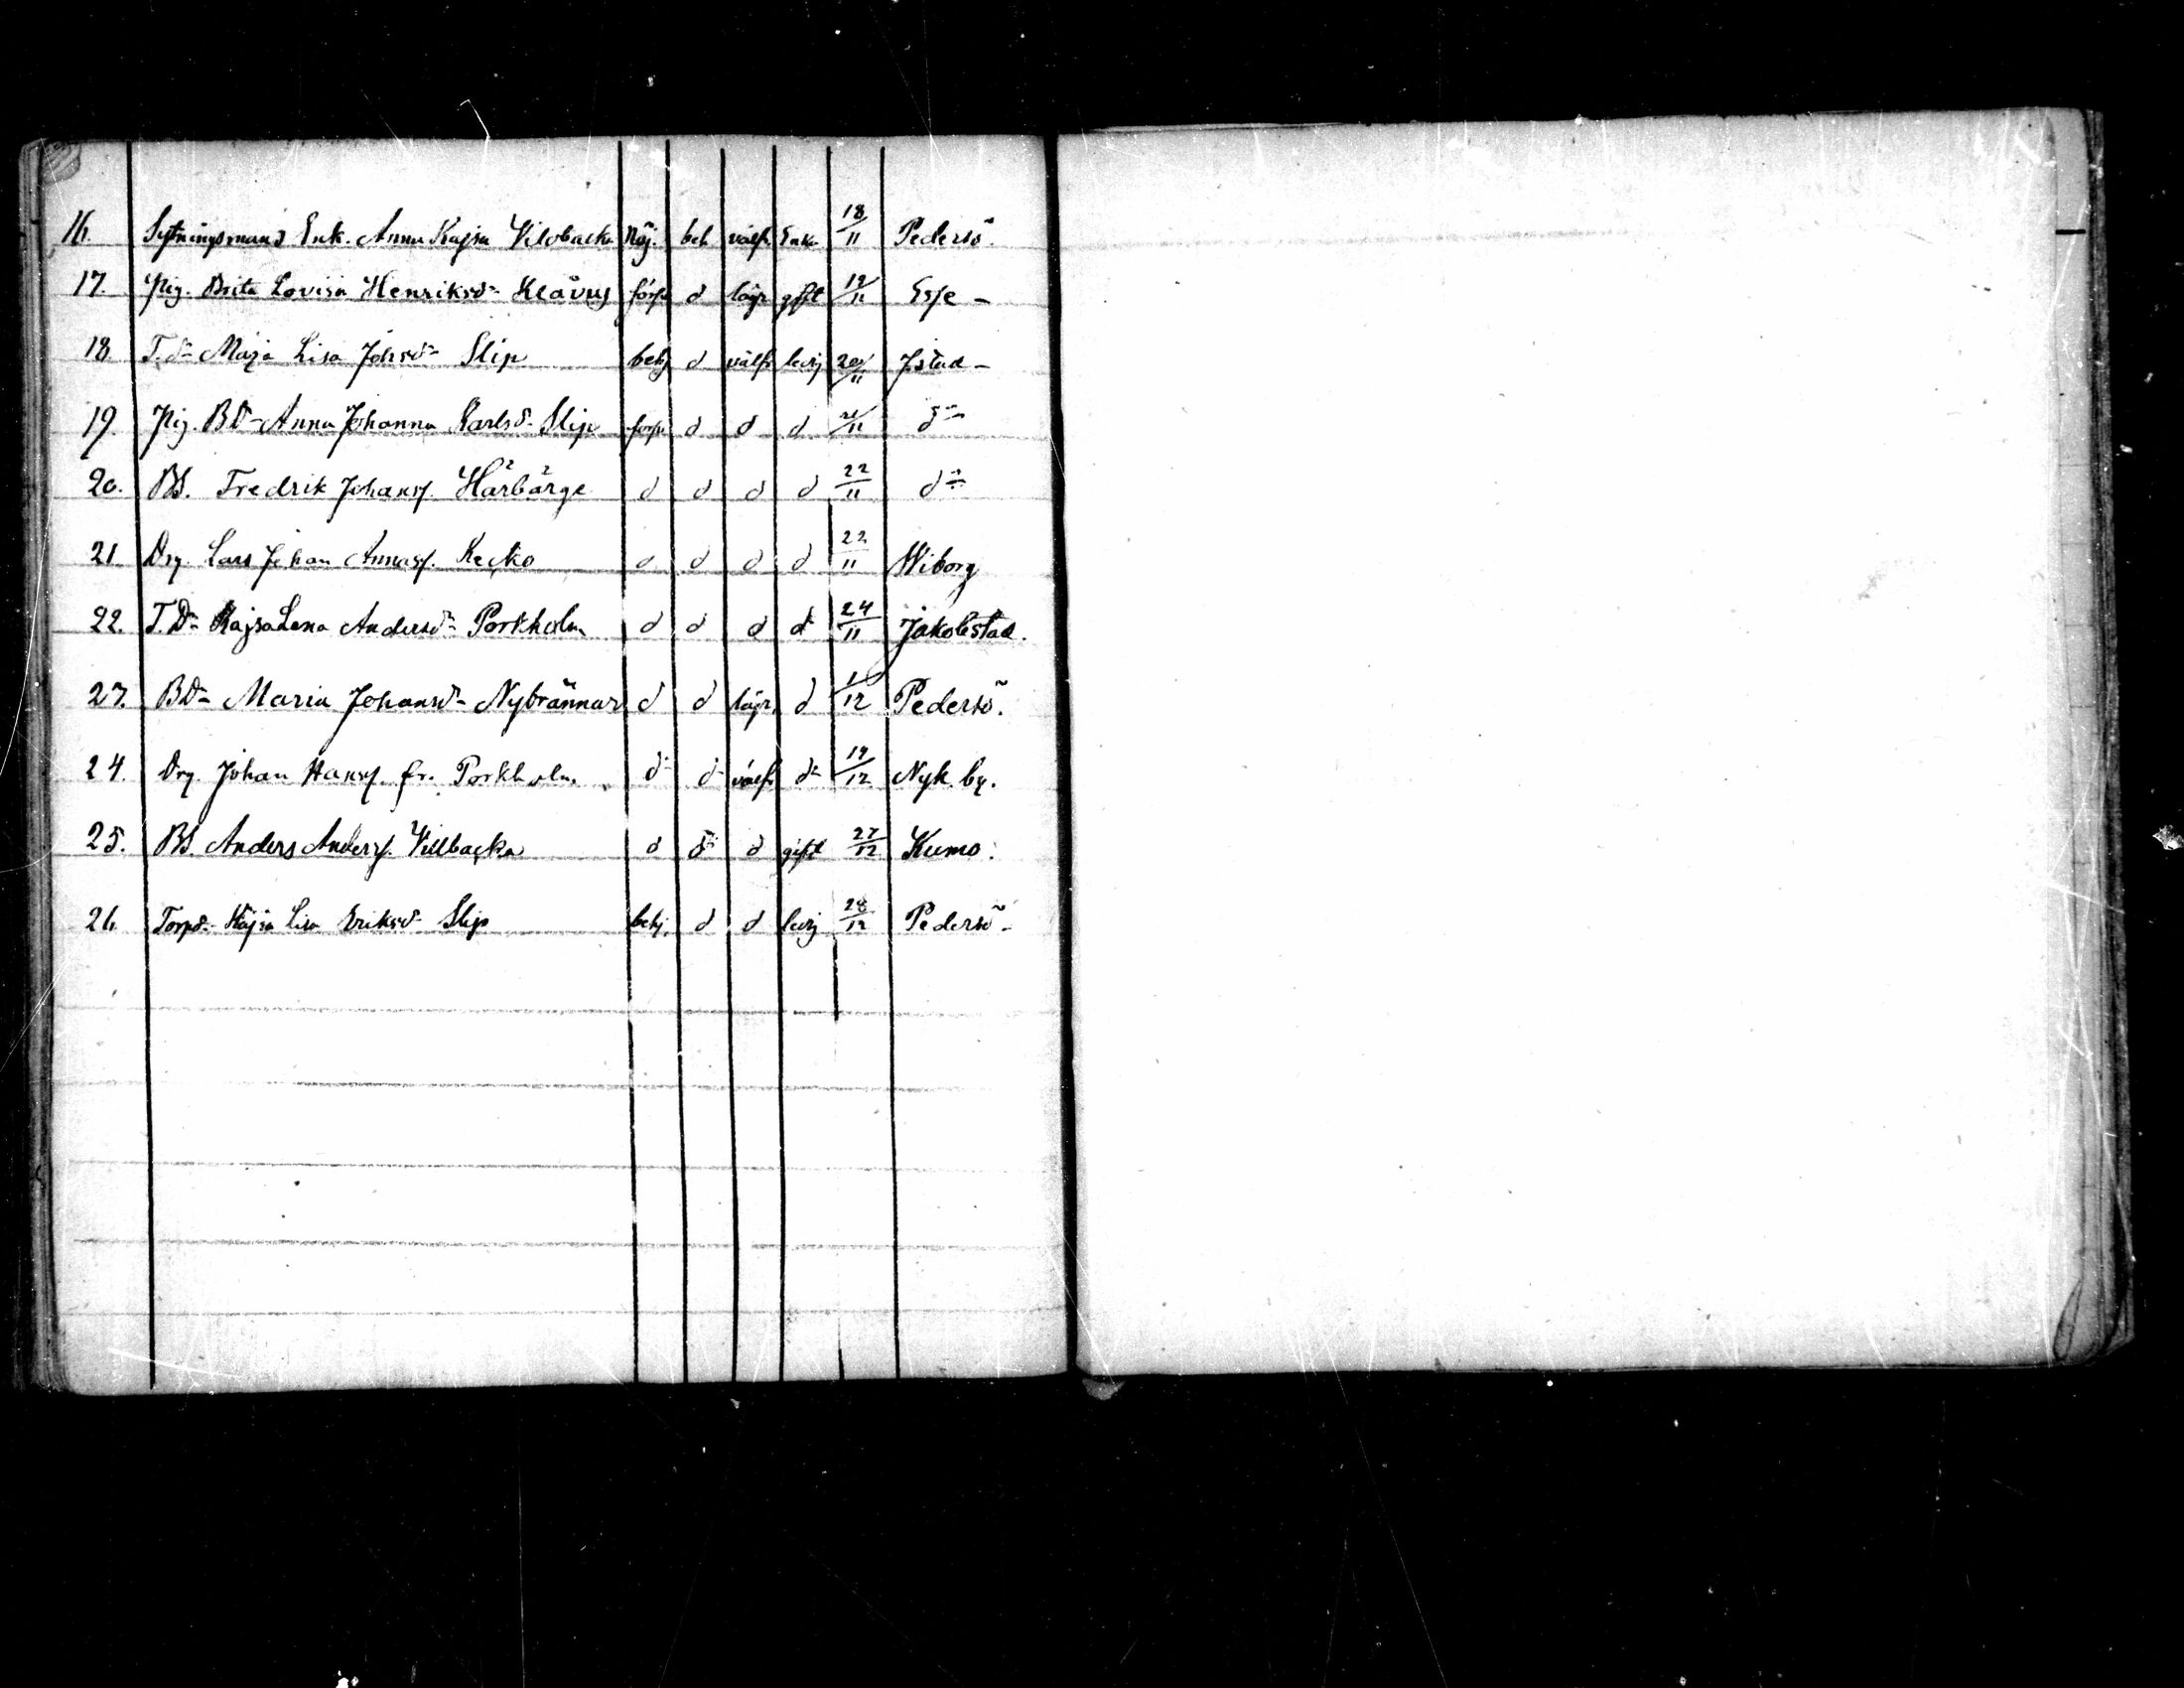 16. Sytningsmans Enk. Anna Kajsa Vilobacka Nöj. bek välfr. Enka 18/11 Pedersö.
17. Pig. Brita Lovisa Henriksd:r Klåvus försv. d lägr gift 19/11 Esse -
18 T. d:r Maja Lisa Johsd:r Slip bekj d välfr ledig 20/11 J.stad -
19. Pig. Bd:r Anna Johanna Karlsd. Slip försv. d d d 21/11 d:o
20. BS. Fredrik Johansf. Härbärge d d d d 22/11 d:o
21. Drg. Lars Johan Annasf. Kecko d d d d 22/11 Wiborg
22. T. D:r Kajsa Lena Andersd:r Porkholm d d d d 24/11 Jakobstad.
23. BD:r Maria Johansd:r Nybrännar d d lägr. d 1/12 Pedersö.
24. Drg. Johan Hansf. fr. Porkholm d:o d:o välfr d:o 19/12 Nyk. by.
25. BS. Anders Andersf. Villbacka d d:o d gift 27/12 Kumo.
26 Torpd:r Kajsa Lisa Eriksd:r Slip bekj. d d ledig 28/12 Pedersö -